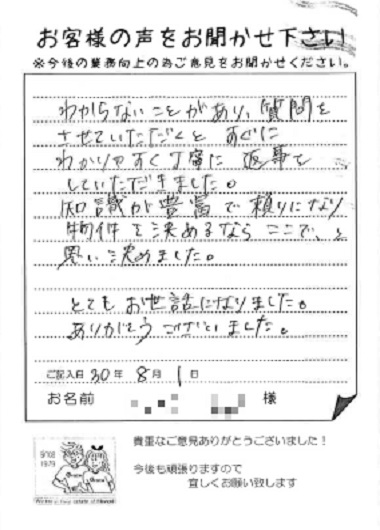 お客様の声をお聞かせ下さい
※今後の業務向上の為ご意見をお聞かせください。
わからないことがあり、質問を
させていただくと すぐに
わかりやすく丁寧に 返事を
していただきました。
知識が豊富で頼りになり
物件を決めるなら ここで、と
思い決めました。
とても お世話になりました。
ありがとう ございました。
ご記入日 30年 8月 1日
お名前 様
貴重なご意見ありがとうございました！
今後も頑張りますので
宜しくお願い致します